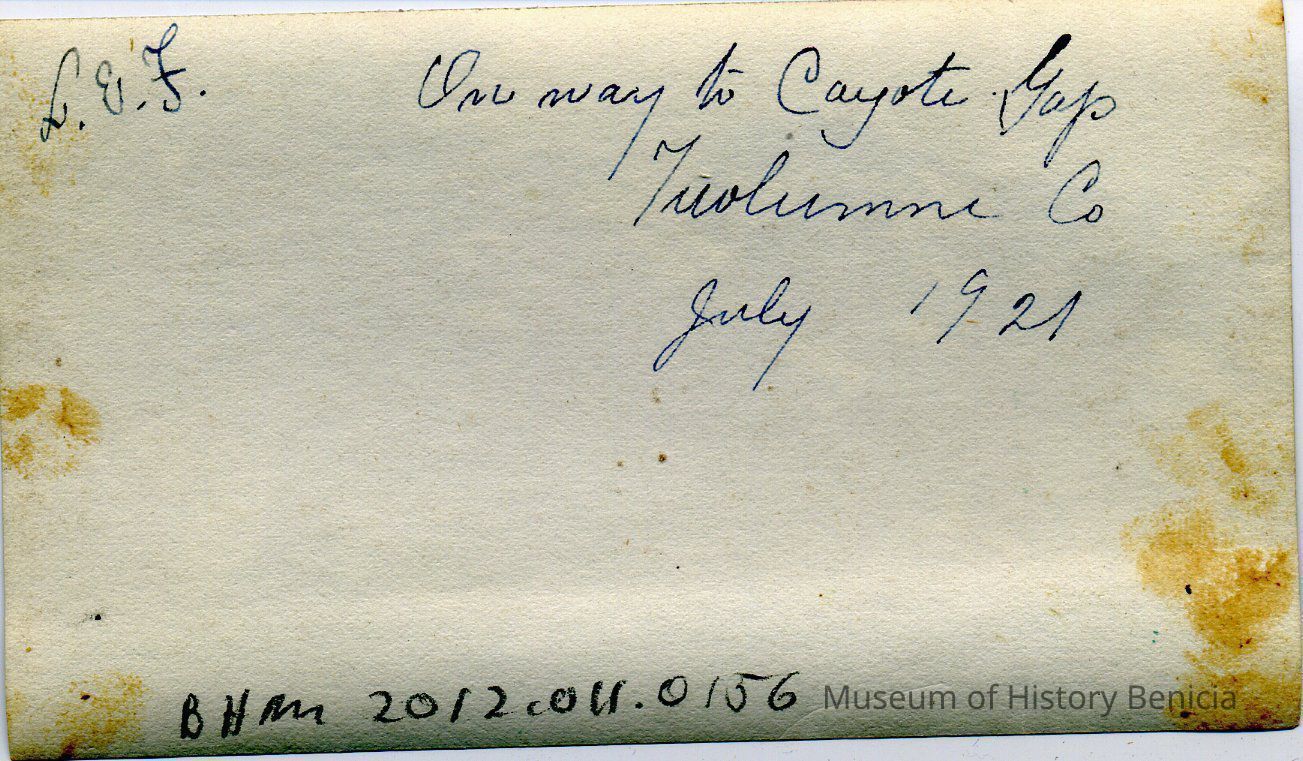 L. E. F.
On way to Cayote Gap
Tuolumne Co
July 1921
BHM 2012.011.0156
Museum of History Benicia